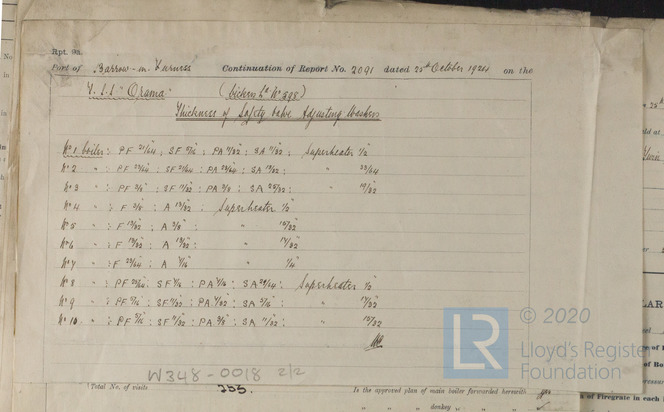 Rpt. 9a.
Port of Barrow-in-Furness Continuation of Report No. 2091 dated 25th October 1924 on the
T.S.S. "Orama" (Vickers Ld No 598)
Thickness of Safety Valve Adjusting Washers
No 1 boiler: PF 21/64 : SF 5/16 : PA 11/32 : SA 11/32 : Superheater 1/2"
No 2 " : PF 23/64 : SF 21/64 : PA 23/64 : SA 13/32 : " 23/64
No 3 " : PF 3/8" : SF 11/32 : PA 3/8" : SA 25/32 : " 19/32
No 4 " : F 3/8" : A 13/32" : Superheater 1/2"
No 5 " : F 13/32 : A 3/8" : " 15/32
No 6 " : F 13/32 : A 13/32 : " 17/32
No 7 " : F 23/64 : A 7/16" : " 1/4"
No 8 " : PF 25/64 : SF 7/16 : PA 7/16 : SA 29/64 : Superheater 1/2"
No 9 " : PF 5/16 : SF 11/32 : PA 11/32 : SA 5/16" : " 17/32
No 10 " : PF 5/16 : SF 11/32 : PA 3/8" : SA 11/32 : " 15/32
W348-0018 2/2
Total No. of visits 255.
Is the approved plan of main boiler forwarded herewith
" " " donkey "
of Firegrate in each
© 2020
LR
Lloyd's Register
Foundation